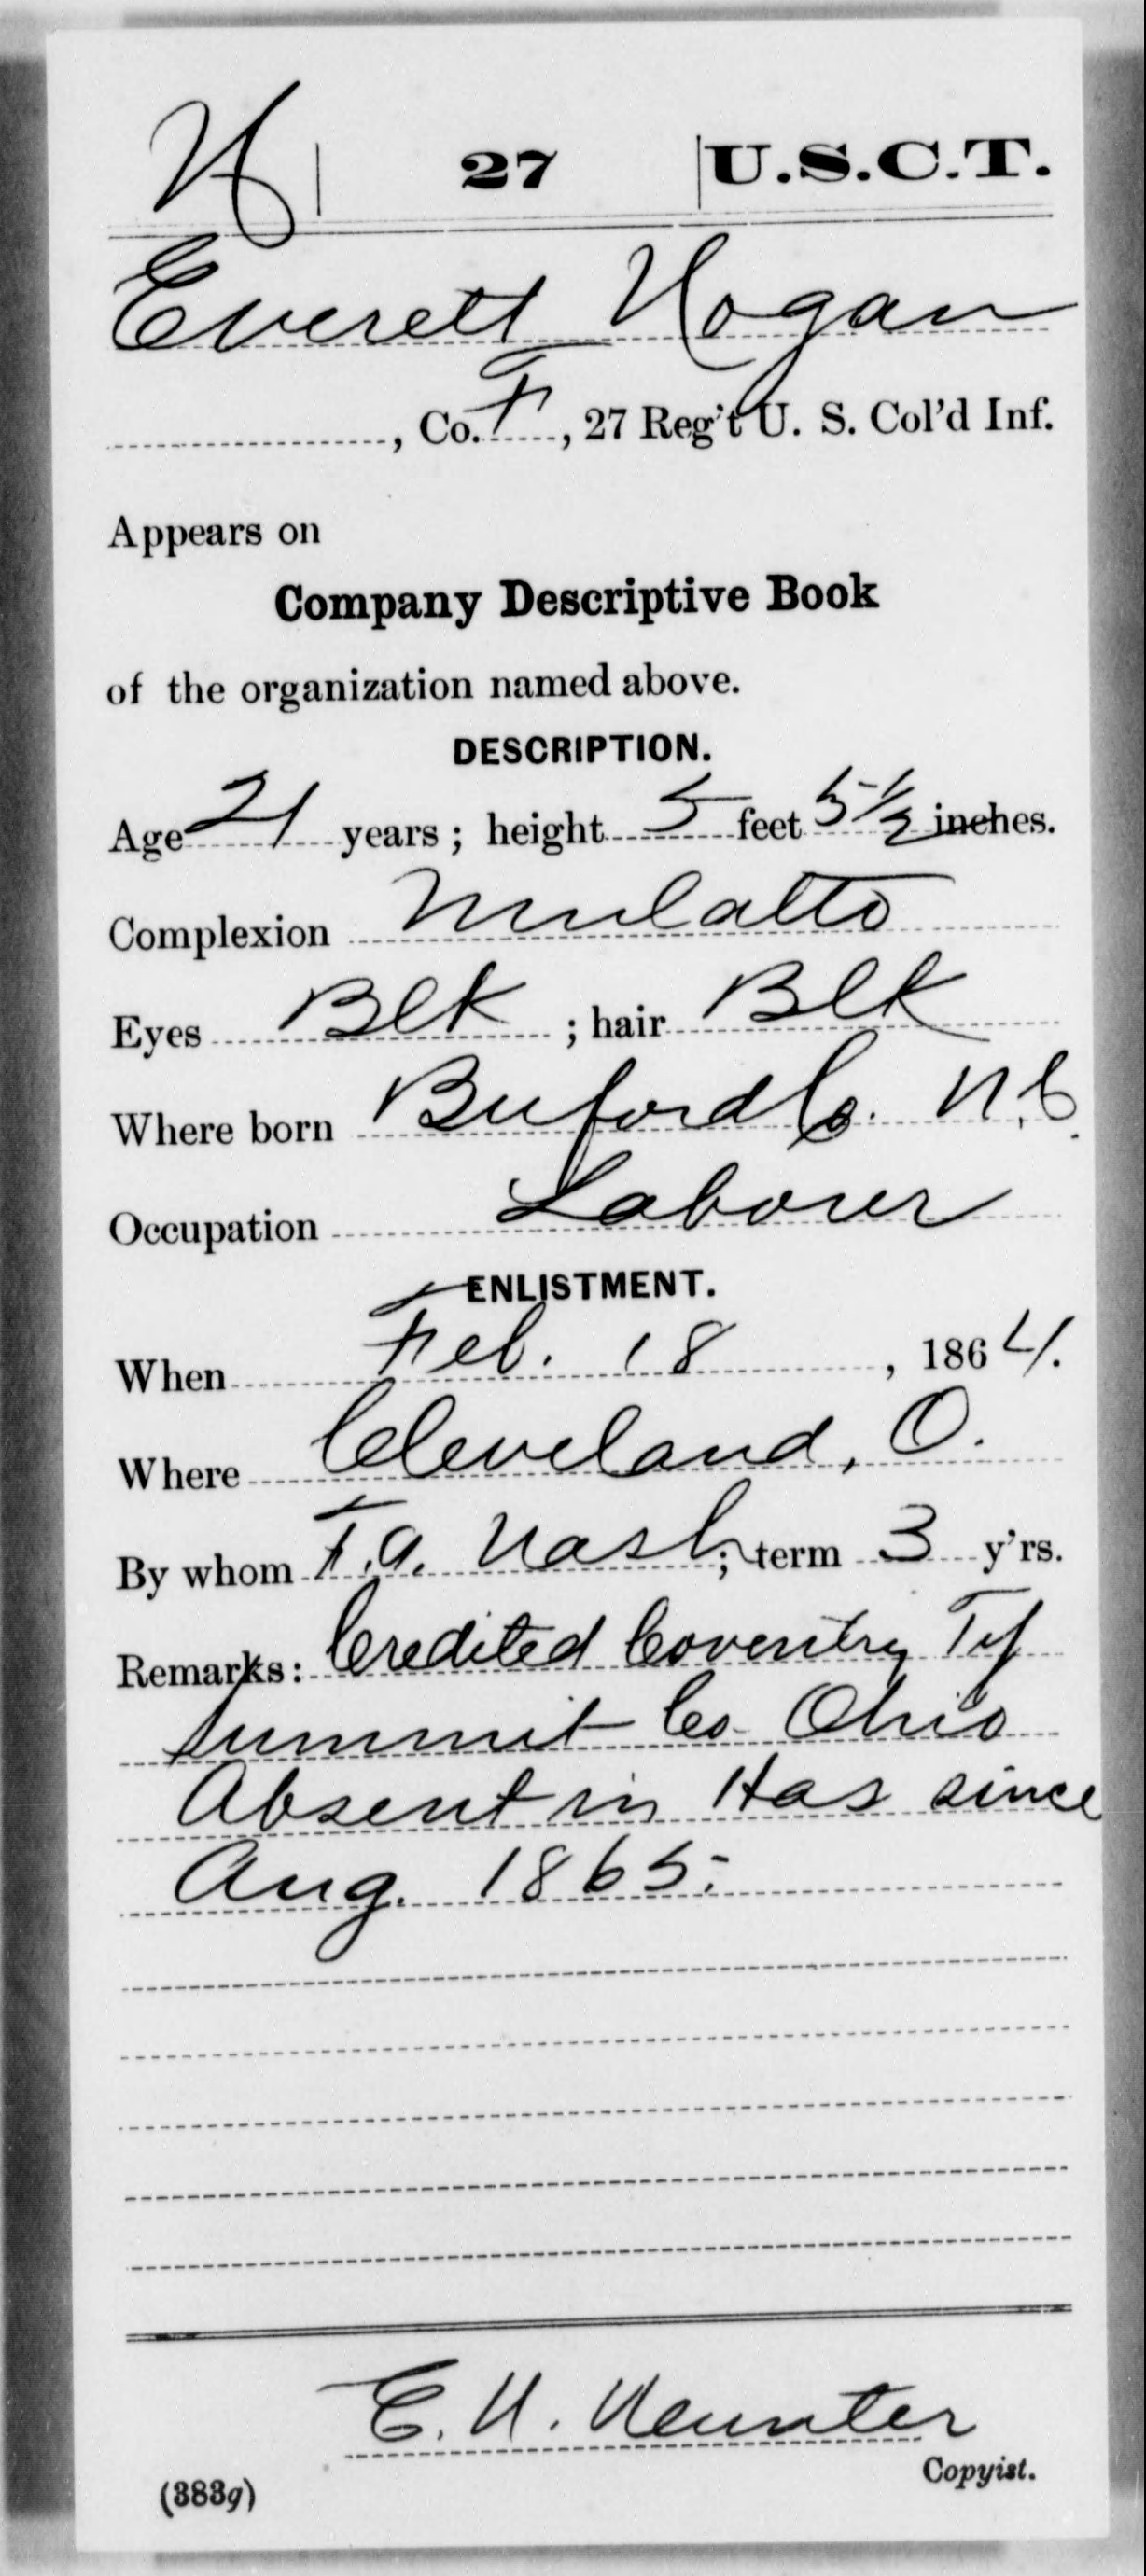 H | 27 | U.S.C.T.
Everett Hogan
, Co. F, 27 Reg't U. S. Col'd Inf.
Appears on
Company Descriptive Book
of the organization named above.
DESCRIPTION.
Age 21 years; height 5 feet 5 1/2 inches.
Complexion Mulatto
Eyes Blk; hair Blk
Where born Buford Co. N.C.
Occupation Laborer
ENLISTMENT.
When Feb. 18, 1864.
Where Cleveland, O.
By whom F.A. Nash; term 3 y'rs.
Remarks: Credited Coventry Tp
Summit Co Ohio
Absent in Hos since
Aug. 1865.
E. H.
Copyist.
(383g)